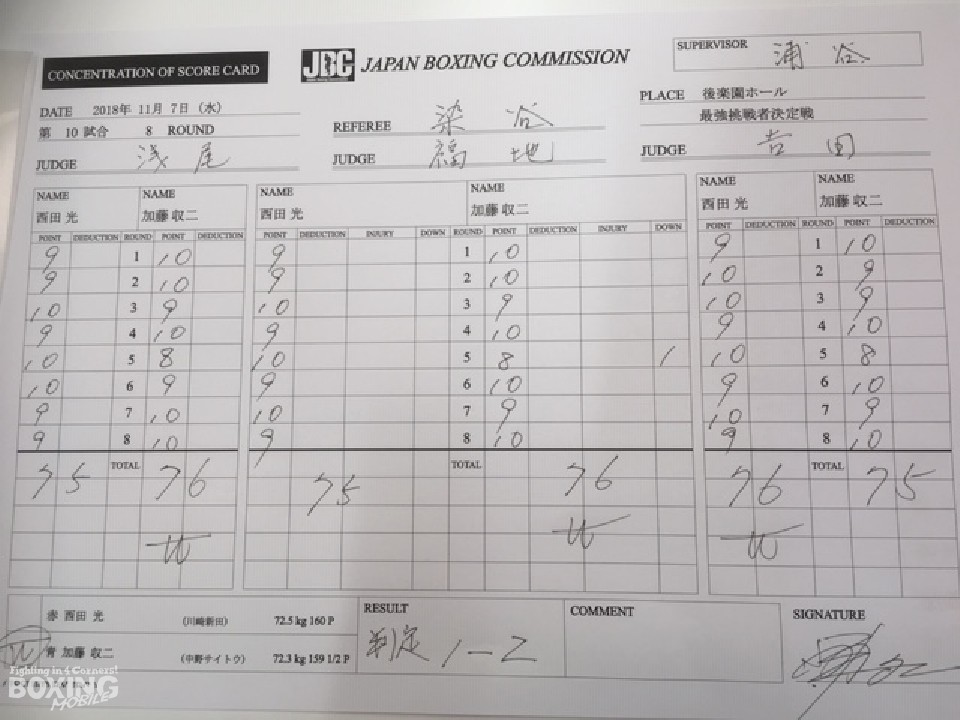 CONCENTRATION OF SCORE CARD
JBC JAPAN BOXING COMMISSION
SUPERVISOR 浦谷
DATE 2018年 11月 7日 (水)
PLACE 後楽園ホール
第 10 試合 8 ROUND
REFEREE 染谷
最強挑戦者決定戦
JUDGE 浅尾
JUDGE 福地
JUDGE 吉田
NAME NAME NAME NAME NAME NAME
西田 光 加藤 収二 西田 光 加藤 収二 西田 光 加藤 収二
POINT DEDUCTION ROUND POINT DEDUCTION POINT DEDUCTION INJURY DOWN ROUND POINT DEDUCTION INJURY DOWN POINT DEDUCTION ROUND POINT DEDUCTION
9 1 10 9 1 10 9 1 10
9 2 10 9 2 10 10 2 9
10 3 9 10 3 9 10 3 9
9 4 10 9 4 10 9 4 10
10 5 8 10 5 8 1 10 5 8
10 6 9 9 6 10 9 6 10
9 7 10 10 7 9 10 7 9
9 8 10 9 8 10 9 8 10
75 TOTAL 76 75 TOTAL 76 76 TOTAL 75
W W W
赤 西田 光 (川崎新田) 72.5 kg 160 P
W 青 加藤 収二 (中野サイトウ) 72.3 kg 159 1/2 P
RESULT
判定 1-2
COMMENT
SIGNATURE
Fighting in 4 Corners!
BOXING
MOBILE